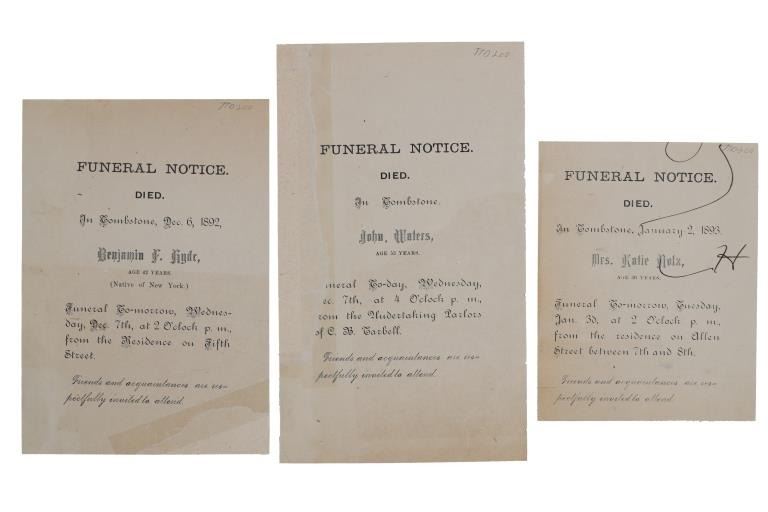 FUNERAL NOTICE.
DIED.
In Tombstone, Dec. 6, 1892,
Benjamin F. Hyde,
AGE 42 YEARS.
(Native of New York.)
Funeral To-morrow, Wednes-
day, Dec. 7th, at 2 O'clock p. m.,
from the Residence on Fifth
Street.
Friends and acquaintances are res-
pectfully invited to attend.
FUNERAL NOTICE.
DIED.
In Tombstone.
John Waters,
AGE 53 YEARS.
uneral To-day, Wednesday,
ec. 7th, at 4 O'clock p. m.,
rom the Undertaking Parlors
of C. B. Tarbell.
Friends and acquaintances are res-
pectfully invited to attend.
FUNERAL NOTICE.
DIED.
In Tombstone, January 2, 1893.
Mrs. Katie
YEARS.
Funeral To-morrow, Tuesday,
Jan. 3d, at 2 O'clock p. m.,
from the residence on Allen
Street between 7th and 8th.
Friends and acquaintances are res-
pectfully invited to attend.